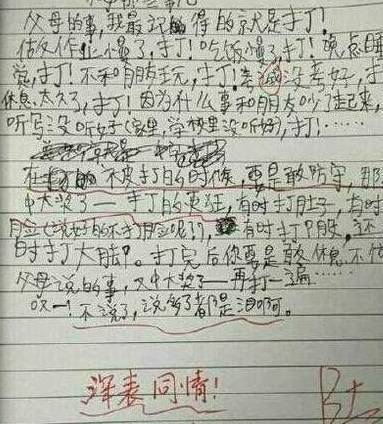 父母的事,我最记得的就是打了!
估反作业慢了,打!吃饭慢了,打!晚点睡
觉,打!不和朋友玩,打!考试没考好,打
休息太久了,打!因为什么事和朋友吵了起来,
听写没听好(家里,学校里没听好),打!……
在 不皮打的时候,要是敢防守,那
中大奖了——打的更狂,有时打肚子,有时
脸(说好的不打脸呢?),有时打屁股,还
时打大腿。打完后你要是敢休息,不做
父母说的事,又中大奖了——再打一遍……
哎——!不说了,说多了都是泪啊。
深表同情!
B+